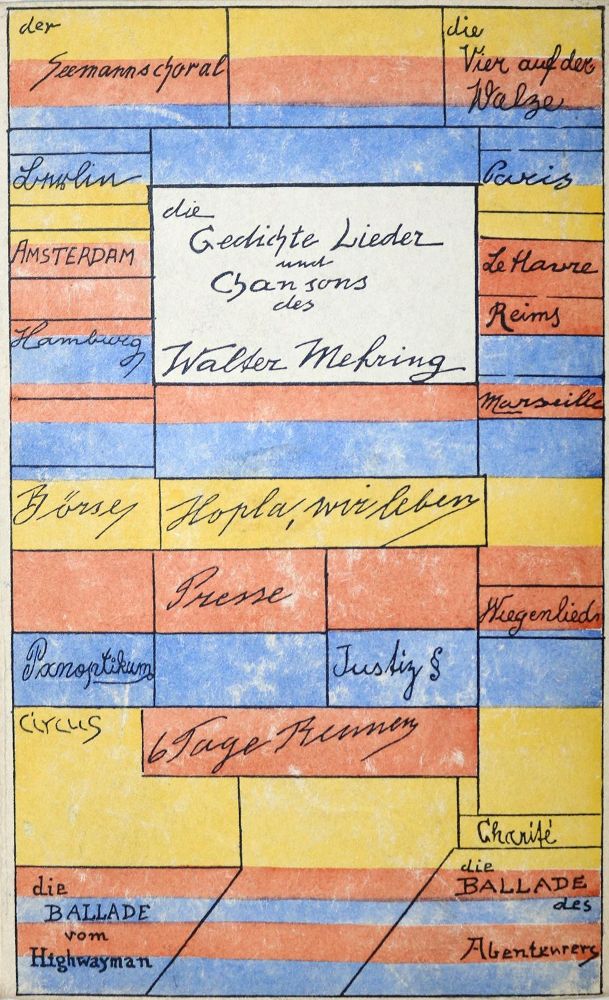 der
Seemannschoral
die
Vier auf der
Walze
Berlin
Paris
die
Gedichte Lieder
und
Chansons
des
Walter Mehring
AMSTERDAM
Le Havre
Reims
Hamburg
Marseille
Börse
Hopla, wir leben
Presse
Wiegenlied
Panoptikum
Justiz §
CIRCUS
6 Tage Rennen
Charité
die
BALLADE
vom
Highwayman
die
BALLADE
des
Abenteurers